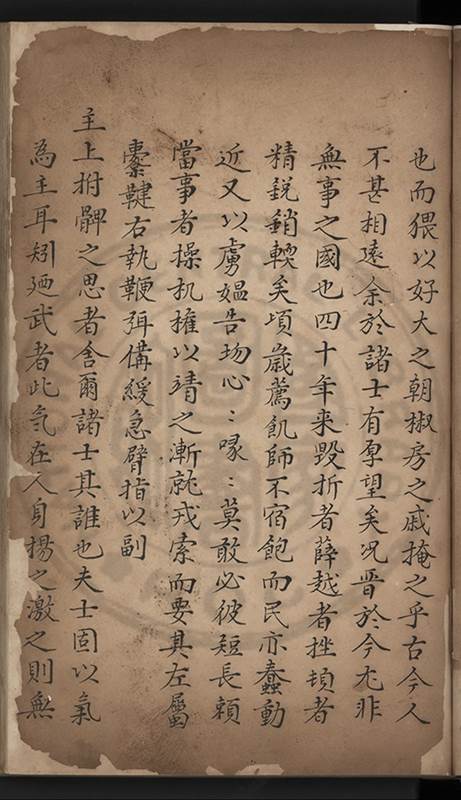 也而猥以好大之朝椒房之戚掩之乎古今人
不甚相遠余於諸士有厚望矣况晋於今尤非
無事之國也四十年来毀折者薛越者挫頓者
精鋭銷耎矣頃歲薦飢師不宿飽而民亦蠢動
近又以虜媪告物心〻喙〻莫敢必彼短長頼
當事者操机擁以靖之漸就戎索而要其左屬
櫜鞬右執鞭弭備緩急臂指以副
主上拊髀之思者舍爾諸士其誰也夫士固以氣
為主耳矧廼武者此氣在人自揚之激之則無